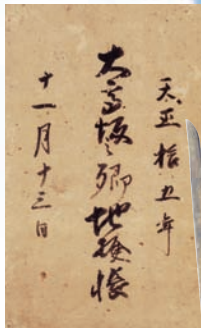 天正拾五年
大高坂之郷地検帳
十一月十三日